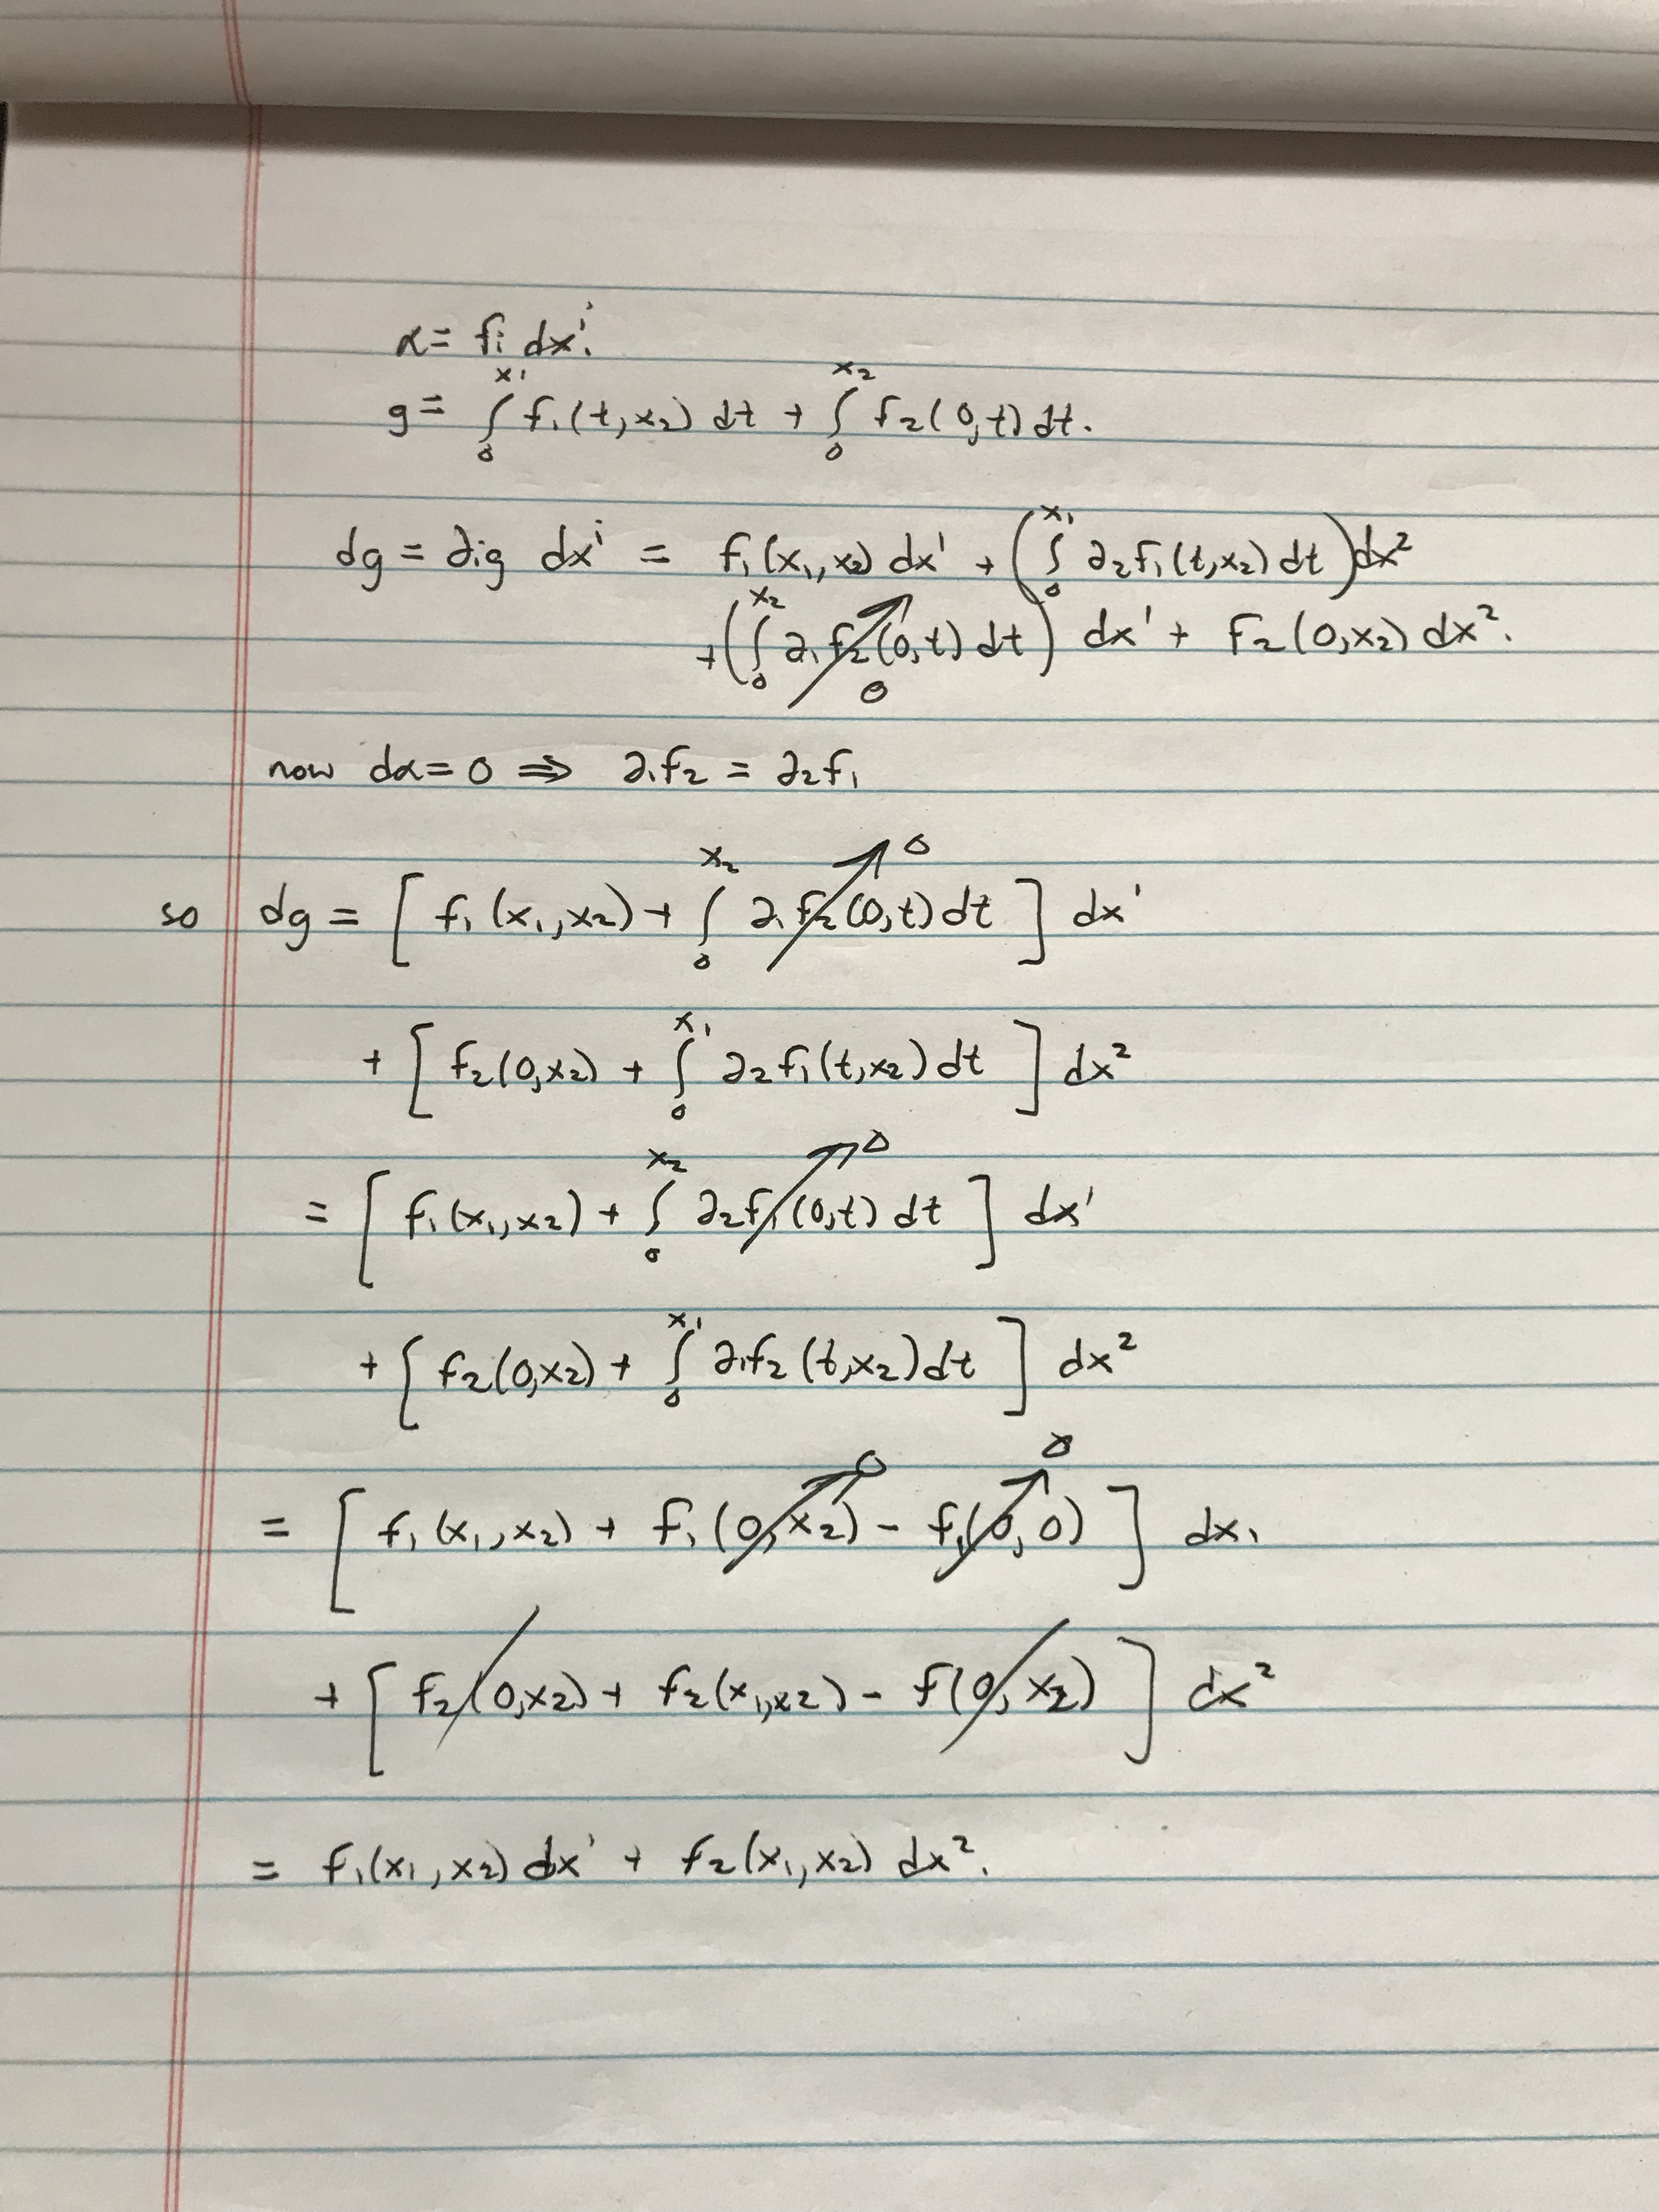 α = fᵢ dxⁱ.
g = ∫₀^{x₁} f₁(t,x₂) dt + ∫₀^{x₂} f₂(0,t) dt.
dg = ∂ᵢg dxⁱ = f₁(x₁,x₂) dx¹ + (∫₀^{x₁} ∂₂f₁(t,x₂) dt) dx²
+ (∫₀^{x₂} ∂₁f₂(0,t) dt) dx¹ + f₂(0,x₂) dx².
0
now dα = 0 ⇒ ∂₁f₂ = ∂₂f₁
0
so dg = [ f₁(x₁,x₂) + ∫₀^{x₂} ∂₁f₂(0,t) dt ] dx¹
+ [ f₂(0,x₂) + ∫₀^{x₁} ∂₂f₁(t,x₂) dt ] dx²
0
= [ f₁(x₁,x₂) + ∫₀^{x₂} ∂₂f₁(0,t) dt ] dx¹
+ [ f₂(0,x₂) + ∫₀^{x₁} ∂₁f₂(t,x₂) dt ] dx²
0 0
= [ f₁(x₁,x₂) + f₁(0,x₂) - f₁(0,0) ] dx₁
+ [ f₂(0,x₂) + f₂(x₁,x₂) - f(0,x₂) ] dx²
= f₁(x₁,x₂) dx¹ + f₂(x₁,x₂) dx².